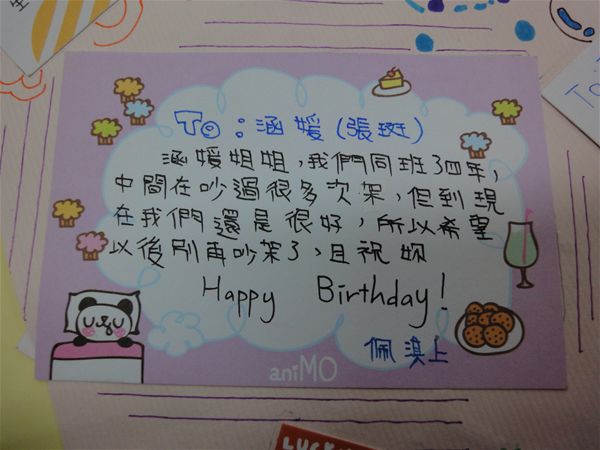 To：涵媛(張斑)
涵媛姐姐，我們同班了四年，
中間在吵過很多次架，但到現
在我們還是很好，所以希望
以後別再吵架了、且祝妳
Happy Birthday!
佩淇上
aniMO
LUCKY